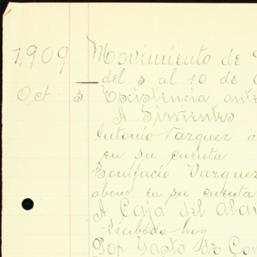 1,909 Movimiento de
del 5 al 10 de
Oct 5 Existencia ante
A Sirvientes
Antonio Vazquez a
en su cuenta
Bonifacio Vazquez
abono en su cuenta
A Caja del
Recibido hoy
Por Gasto De Con